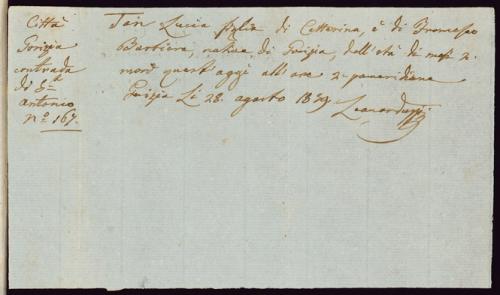 Città
Gorizia
contrada
di S.t
antonio
N.o 167.
Lucia figlia di Catterina, è di Francesco
Barbiera, nativa di Gorizia, dell'età di mesi 2.
morì quest'oggi all'ore 2. pomeridiane
Gorizia Li 28. agosto